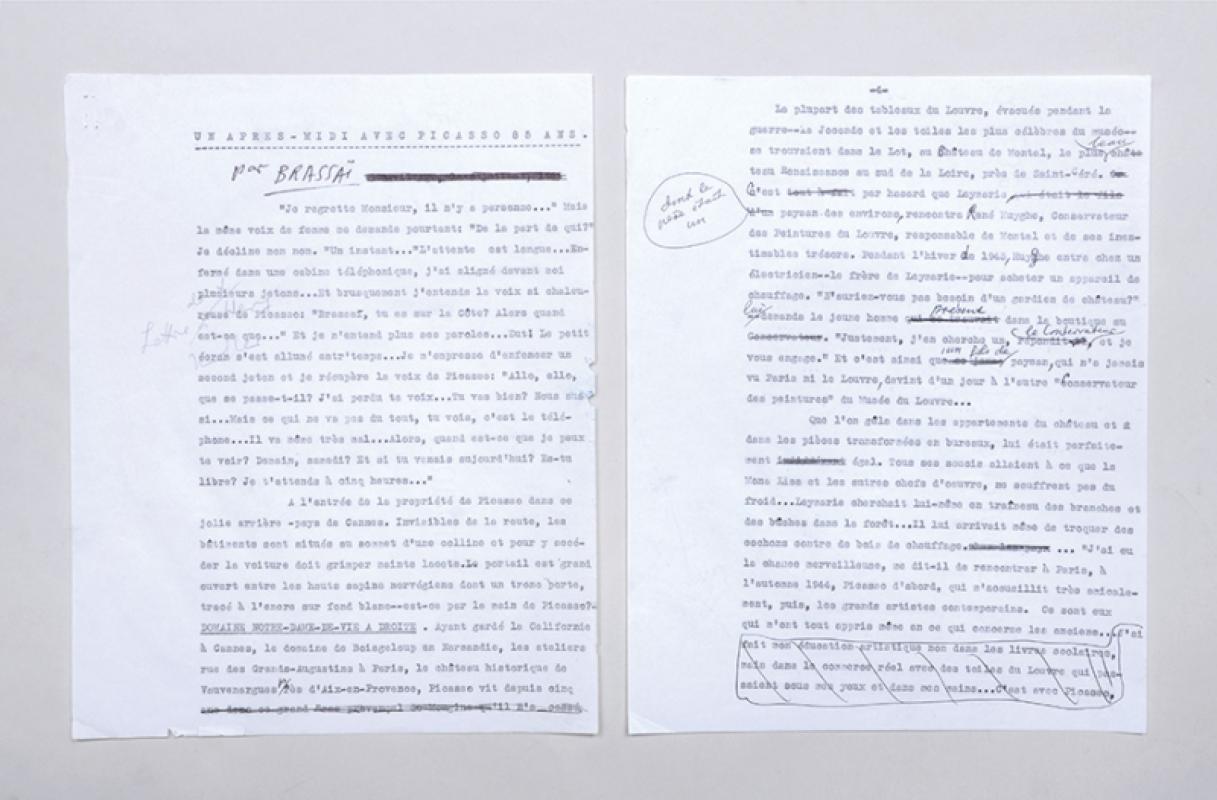 UN APRES-MIDI AVEC PICASSO 85 ANS.
par BRASSAÏ
"Je regrette Monsieur, il n'y a personne..." Mais
la même voix de femme me demande pourtant: "De la part de qui?"
Je décline mon nom. "Un instant..."L'attente est longue...En-
fermé dans une cabine téléphonique, j'ai aligné devant moi
plusieurs jetons...Et brusquement j'entends la voix si chaleu-
reuse de Picasso: "Brassaï, tu es sur la Côte? Alors quand
est-ce que..." Et je n'entend plus ses paroles...Zut! Le petit
écran s'est allumé entr'temps...Je m'empresse d'enfoncer un
second jeton et je récupère la voix de Picasso: "Allo, allo,
que se passe-t-il? J'ai perdu ta voix...Tu vas bien? Nous aus-
si...Mais ce qui ne va pas du tout, tu vois, c'est le télé-
phone...Il va même très mal...Alors, quand est-ce que je peux
te voir? Demain, samedi? Et si tu venais aujourd'hui? Es-tu
libre? Je t'attends à cinq heures..."
A l'entrée de la propriété de Picasso dans ce
jolie arrière -pays de Cannes. Invisibles de la route, les
bâtiments sont situés au sommet d'une colline et pour y accé-
der la voiture doit grimper mainte lacets.Le portail est grand
ouvert entre les hauts sapins norvégiens dont un tronc porte,
tracé à l'encre sur fond blanc--est-ce par la main de Picasso?-
DOMAINE NOTRE-DAME-DE-VIE A DROITE . Ayant gardé la Californie
à Cannes, le domaine de Boisgeloup en Normandie, les ateliers
rue des Grands-Augustins à Paris, le château historique de
Vauvenargues près d'Aix-en-Provence, Picasso vit depuis cinq
Lettre
-4-
Le plupart des tableaux du Louvre, évacués pendant la
guerre--la Joconde et les toiles les plus célèbres du musée--
se trouvaient dans le Lot, au Château de Montal, le plus beau châ-
teau Renaissance au sud de la Loire, près de Saint-Céré.
C'est tout à fait par hasard que Leymarie, qui était le fils
dont le
père était
un
d'un paysan des environs, rencontra René Huyghe, Conservateur
des Peintures du Louvre, responsable de Montal et de ses ines-
timables trésors. Pendant l'hiver de 1943, Huyghe entre chez un
électricien--le frère de Leymarie--pour acheter un appareil de
chauffage. "N'auriez-vous pas besoin d'un gardien de château?"
lui demande le jeune homme présent dans la boutique au
Conservateur. "Justement, j'en cherche un, répondit le Conservateur, et je
vous engage." Et c'est ainsi que un fils de paysan, qui n'a jamais
vu Paris ni le Louvre, devint d'un jour à l'autre "Conservateur
des peintures" du Musée du Louvre...
Que l'on gèle dans les appartements du château et
dans les pièces transformées en bureaux, lui était parfaite-
ment égal. Tous ses soucis allaient à ce que la
Mona Lisa et les autres chefs d'oeuvre, ne souffrent pas du
froid...Leymarie cherchait lui-même en traîneau des branches et
des bûches dans la forêt...Il lui arrivait même de troquer des
cochons contre de bois de chauffage. ... "J'ai eu
la chance merveilleuse, me dit-il de rencontrer à Paris, à
l'automne 1944, Picasso d'abord, qui m'accueillit très amicale-
ment, puis, les grands artistes contemporains. Ce sont eux
qui m'ont tout appris même en ce qui concerne les anciens...J'ai
fait mon éducation artistique non dans les livres scolaires,
mais dans le commerce réel avec des toiles du Louvre qui pas-
saient sous mes yeux et dans mes mains...C'est avec Picasso,